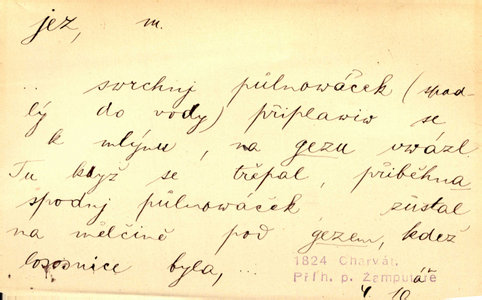 jez, m.
.. svrchnj půlnowáček (spad-
lý do vody) připlawiw se
k mlýnu, na gezu uwázl.
Tu když se třepal, přiběhna
spodnj půlnowáček, zůstal
na mělčině pod gezem, kdež
lososnice byla,...
1824 Charvát.
Příh. p. Žamputáře
4 10 ář